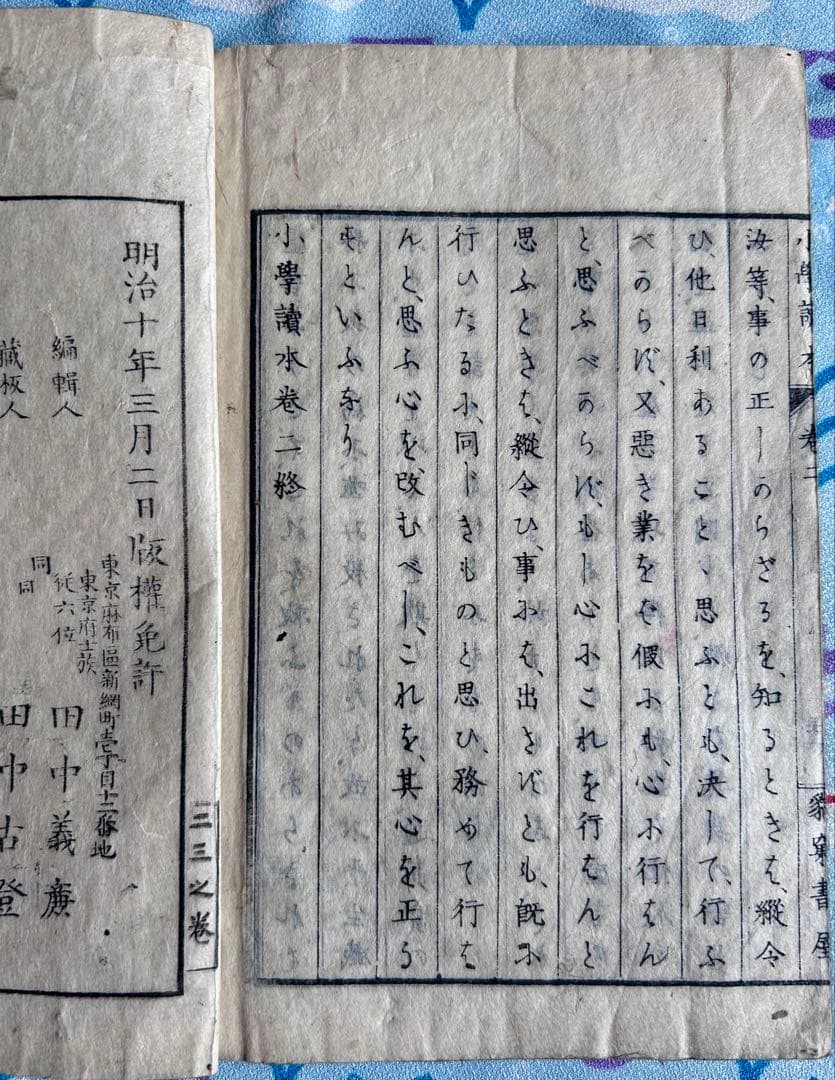 小學讀本 卷二
汝等、事の正しからざるを、知るときは、縱令
ひ、他日利あることゝ思ふとも、決して、行ふ
べからず、又惡き業をば假にも、心に行はん
と、思ふべからず、もし心にこれを行はんと
思ふときは、縱令ひ、事には、出さずとも、既に
行ひたるに、同じきものと思ひ、務めて行は
んと、思ふ心を、改むべし、これを、其心を正う
すといふなり
小學讀本卷二終
豹窠書屋
三三之卷
明治十年三月二日版權免許
東京麻布區新網町壱丁目十二番地
東京府士族
編輯人 從六位 田中義廉
同
同
藏板人 田中古澄